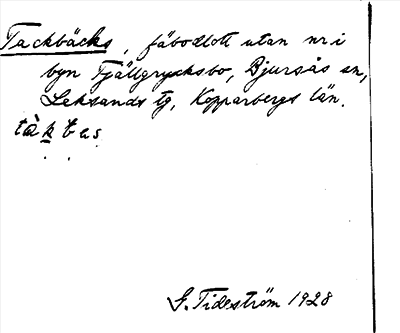 Tackbäcks, fäbodlott utan nr i
byn Fjällgrycksbo, Bjursås sn,
Leksands tg, Kopparbergs län.
tàkbas
G. Tideström 1928